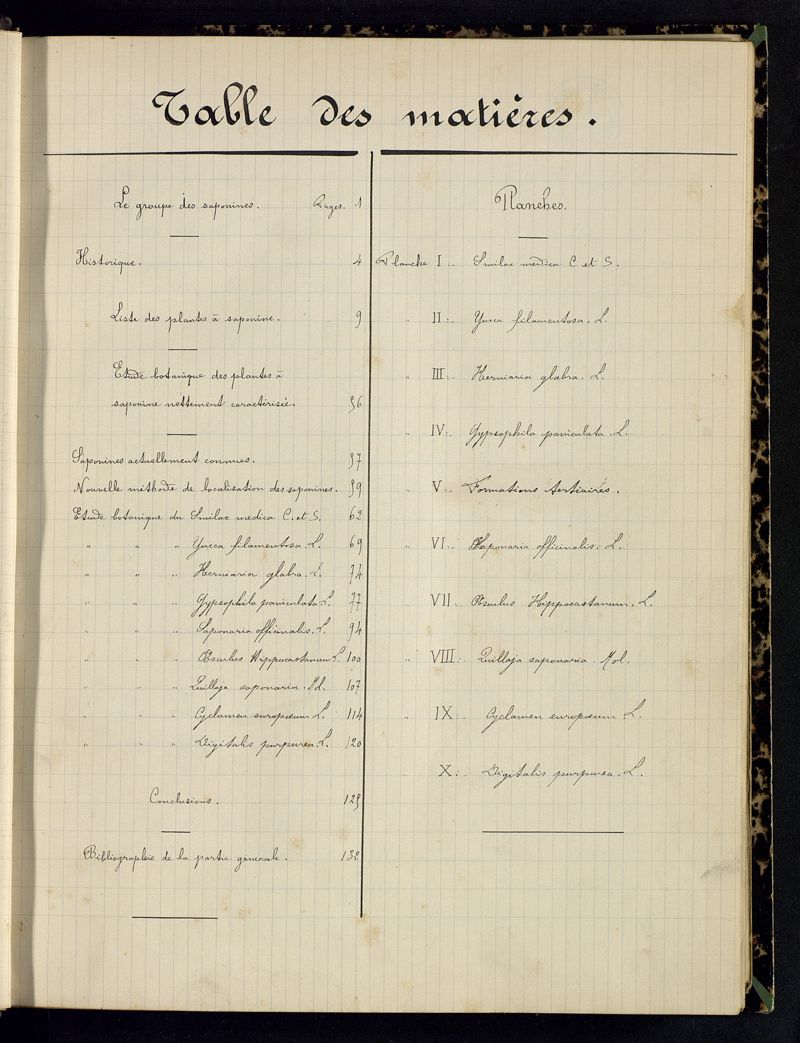 Table des matières.
Le groupe des saponines. Pages. 1
Historique. 4
Liste des plantes à saponine. 9
Etude botanique des plantes à
saponine nettement caractérisée. 56
Saponines actuellement connues. 57
Nouvelle méthode de localisation des saponines. 59
Etude botanique du Smilax medica C. et S. 62
" " " Yucca filamentosa. L. 69
" " " Herniaria glabra. L. 74
" " " Gypsophila paniculata. L. 77
" " " Saponaria officinalis. L. 94
" " " Æsculus Hippocastanum L. 100
" " " Quillaja saponaria. Mol. 107
" " " Cyclamen europæum L. 114
" " " Digitalis purpurea. L. 120
Conclusions. 129
Bibliographie de la partie générale. 132
Planches.
Planche I:- Smilax medica C. et S.
" II:- Yucca filamentosa. L.
" III:- Herniaria glabra. L.
" IV:- Gypsophila paniculata. L.
" V:- Formations tertiaires.
" VI:- Saponaria officinalis. L.
" VII:- Æsculus Hippocastanum. L.
" VIII:- Quillaja saponaria. Mol.
" IX:- Cyclamen europæum. L.
X:- Digitalis purpurea. L.